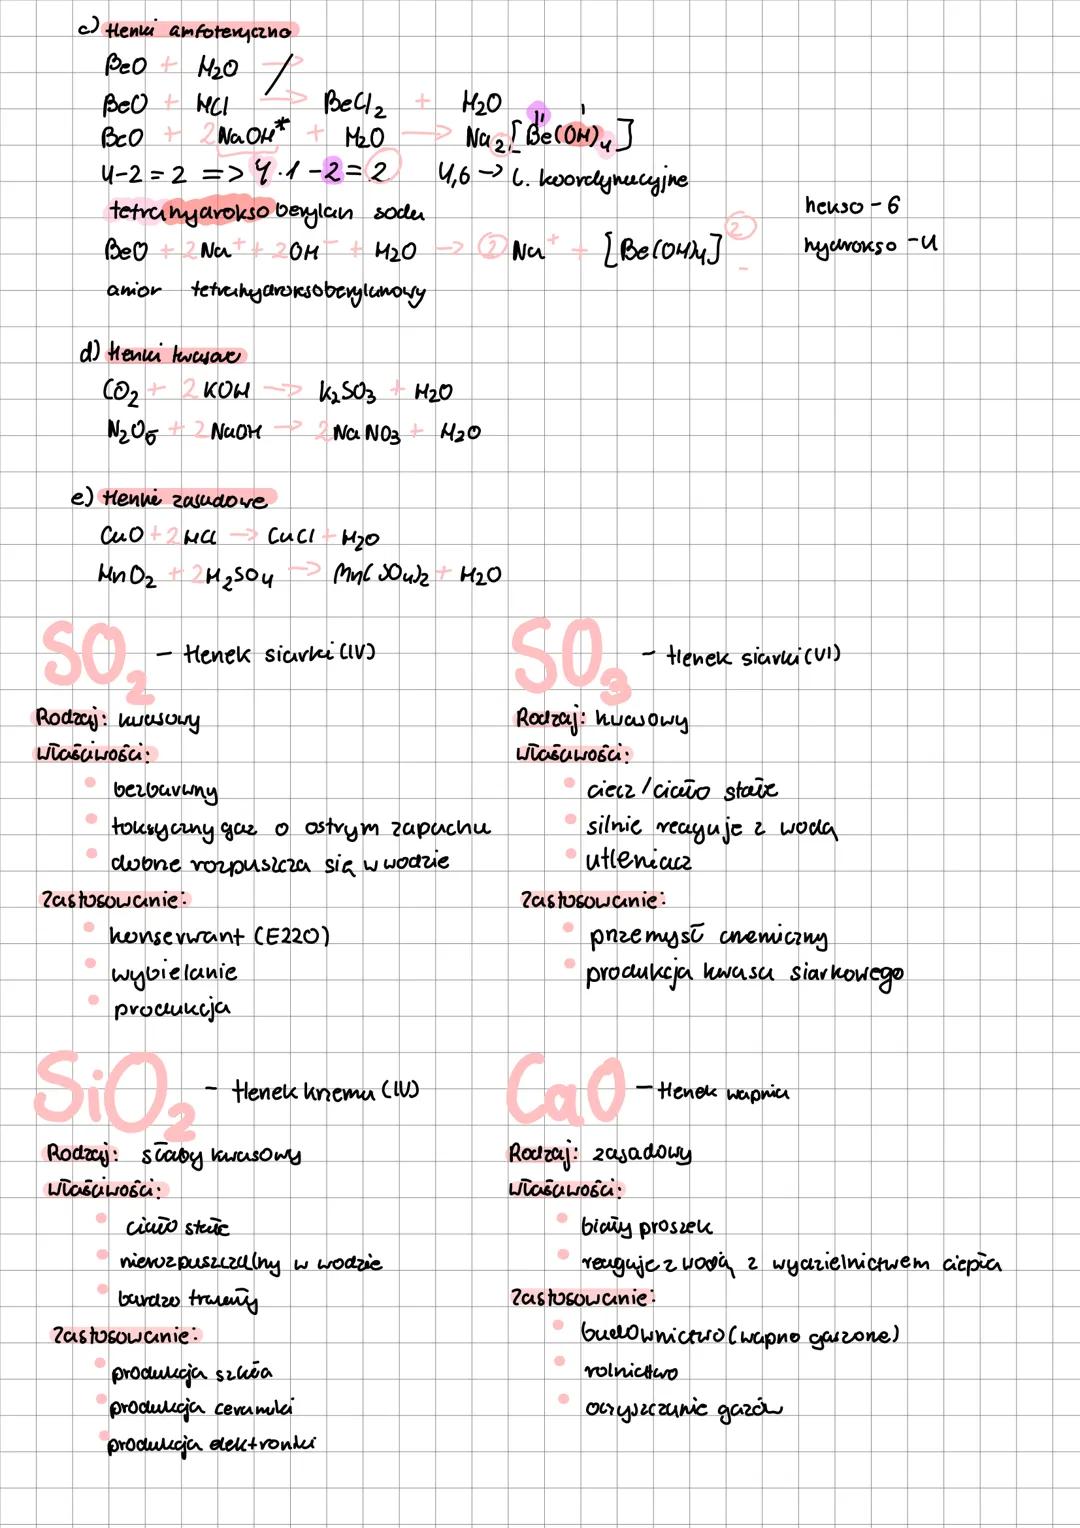 c) tlenki amfoteryczne
BeO + H2O ↛
BeO + HCl → BeCl2 + H2O
BeO + 2NaOH* + H2O → Na2[Be(OH)4]
II I
4-2=2 => 4·1-2=2 4,6 → l. koordynacyjne
tetrahydrokso berylan sodu
hekso - 6
BeO + 2Na+ + 2OH- + H2O → 2Na+ + [Be(OH)4]2-
hydrokso - 4
anion tetrahydroksoberylanowy
d) tlenki kwasowe
CO2 + 2KOH → K2SO3 + H2O
N2O5 + 2NaOH → 2NaNO3 + H2O
e) tlenki zasadowe
CuO + 2HCl → CuCl + H2O
MnO2 + 2H2SO4 → Mn(SO4)2 + H2O
SO2 - tlenek siarki (IV)
Rodzaj: kwasowy
Właściwości:
• bezbarwny
• toksyczny gaz o ostrym zapachu
• dobrze rozpuszcza się w wodzie
Zastosowanie:
• konserwant (E220)
• wybielanie
• produkcja
SO3 - tlenek siarki (VI)
Rodzaj: kwasowy
Właściwości:
• ciecz / ciało stałe
• silnie reaguje z wodą
• utleniacz
Zastosowanie:
• przemysł chemiczny
• produkcja kwasu siarkowego
SiO2 - tlenek krzemu (IV)
Rodzaj: słaby kwasowy
Właściwości:
• ciało stałe
• nierozpuszczalny w wodzie
• bardzo twardy
Zastosowanie:
• produkcja szkła
• produkcja ceramiki
• produkcja elektroniki
CaO - tlenek wapnia
Rodzaj: zasadowy
Właściwości:
• biały proszek
• reaguje z wodą z wydzielnictwem ciepła
Zastosowanie:
• budownictwo (wapno gaszone)
• rolnictwo
• oczyszczanie gazów